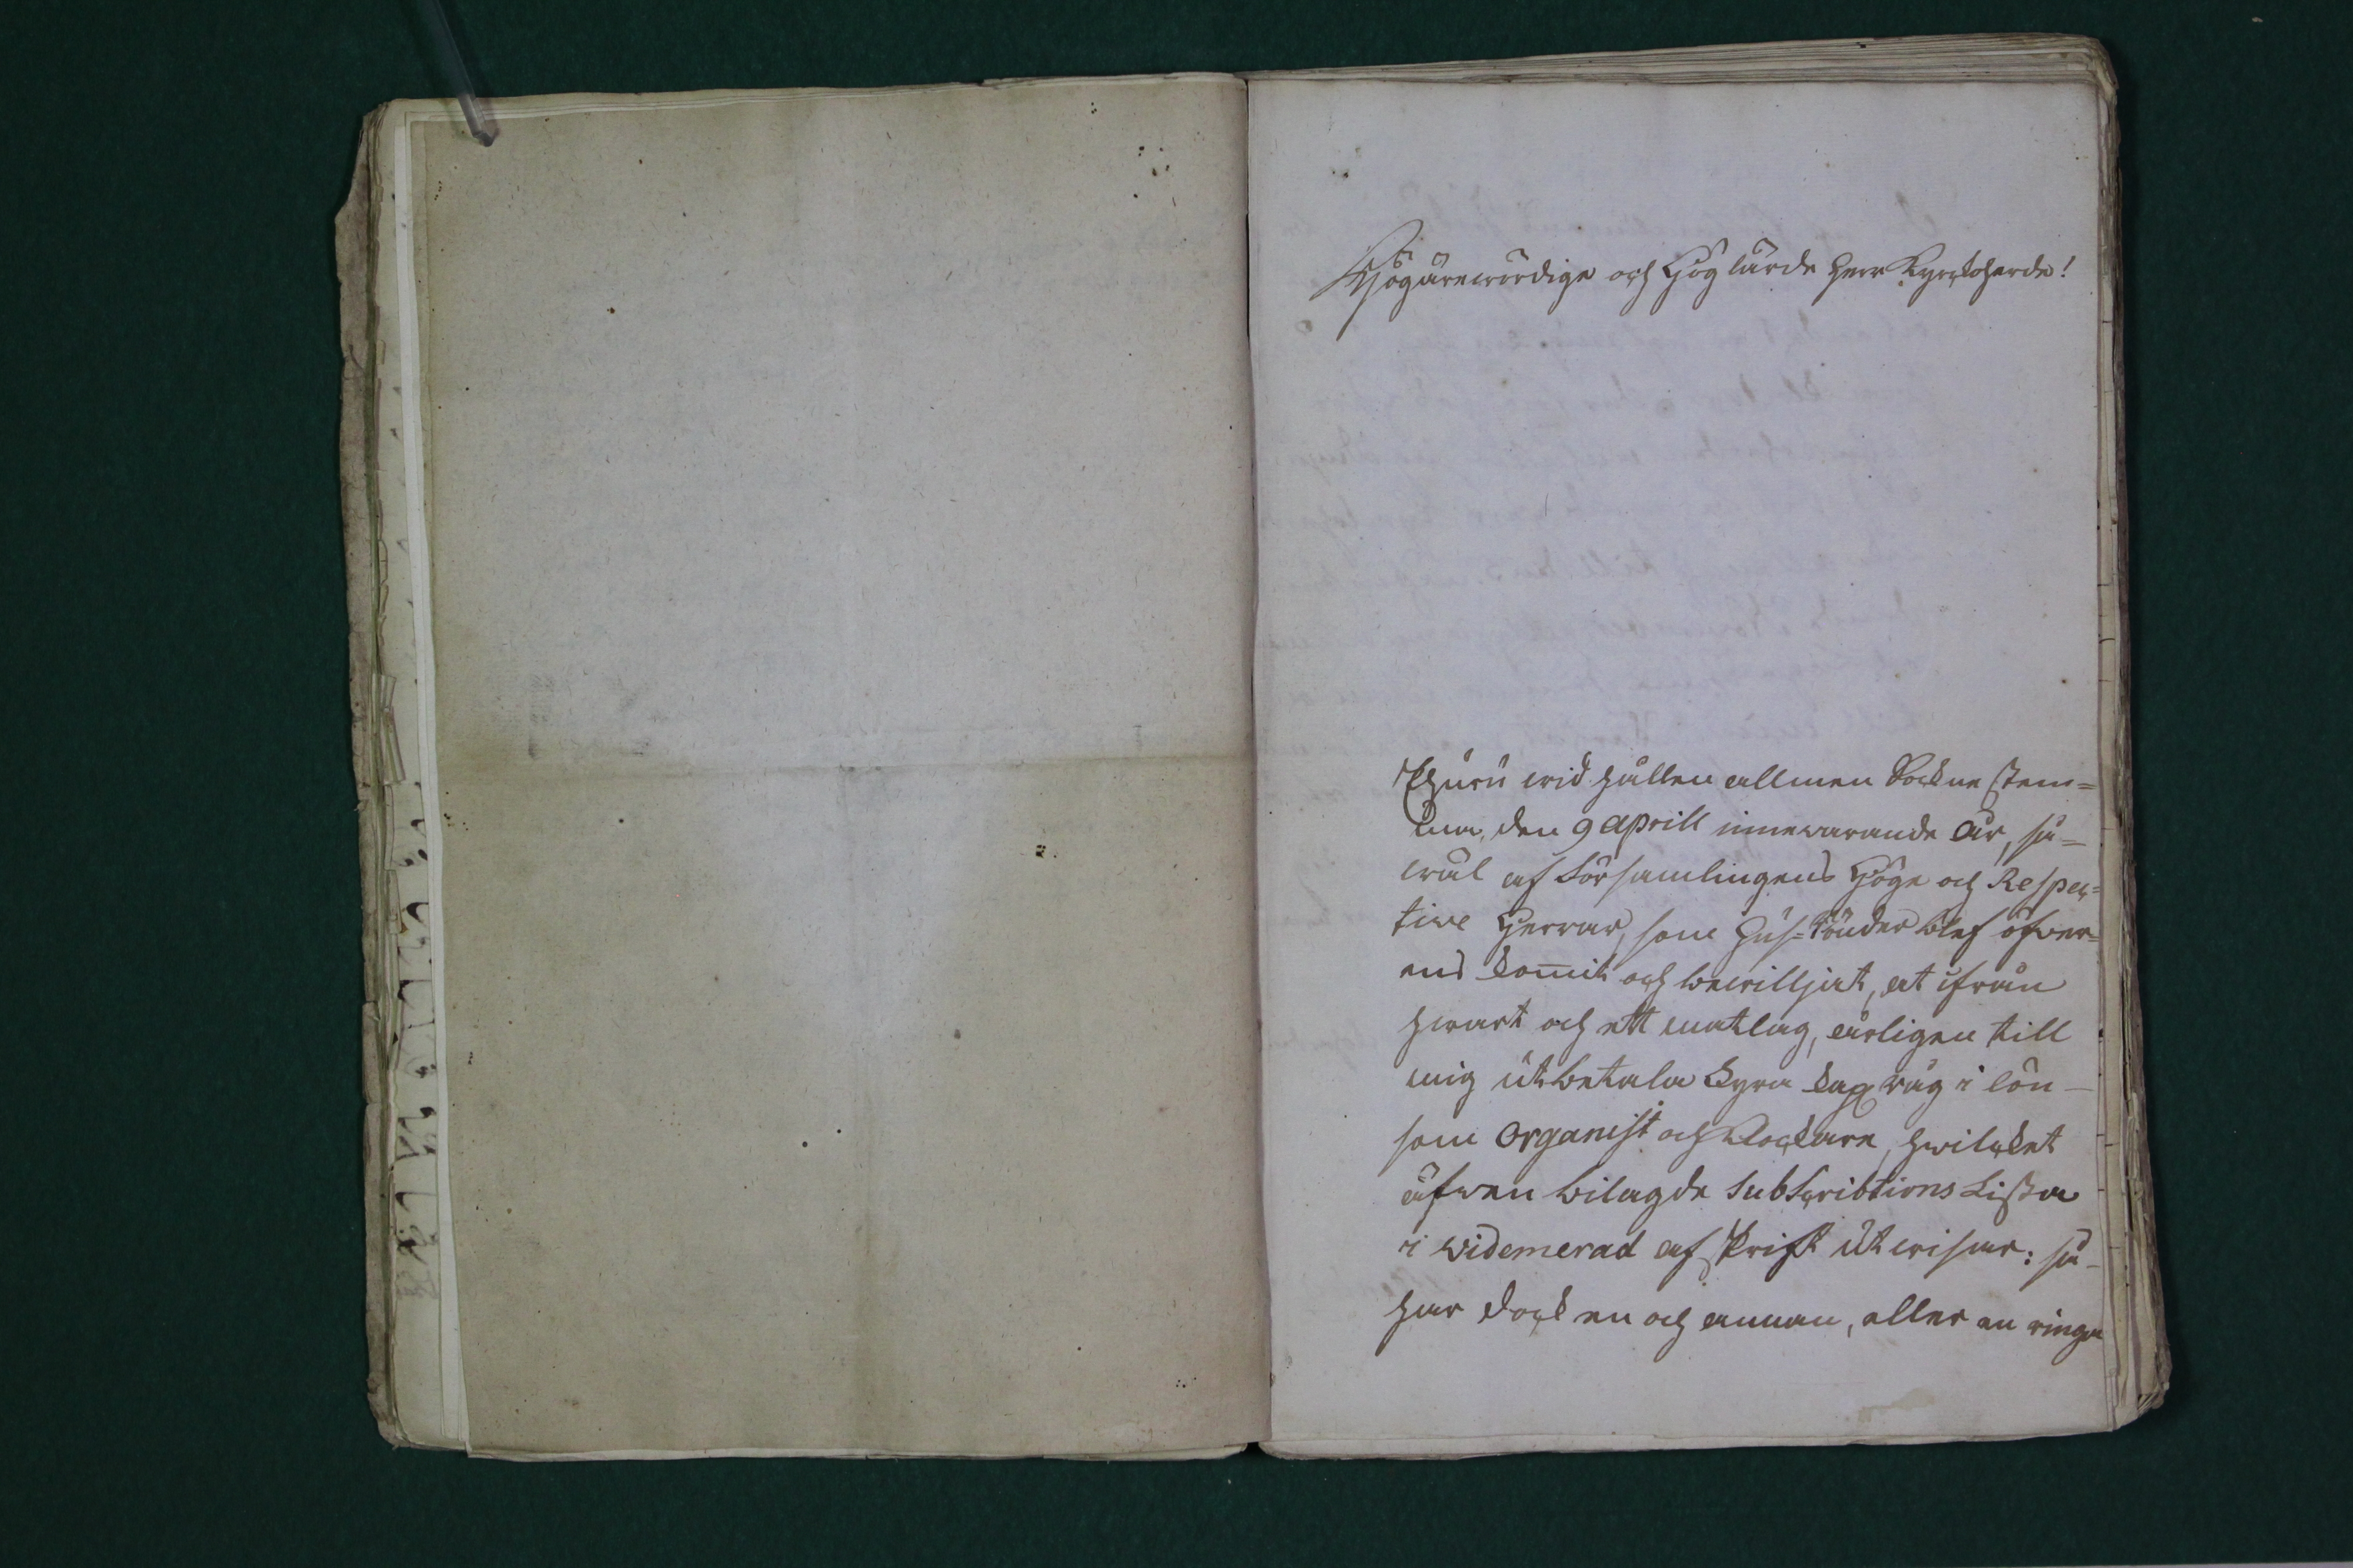 Högärewördige och Höglärde Herr Kyrckoherde!
Ehuru wid hållen allmen Sockne stem=
ma, den 9 Aprill innewarande År, så=
wäl af Församlingens Höge och Respec=
tive Herrar, som Hus-bönder blef öfwer=
ens kom̅it och bewilljat, at ifrån
hwart och ett matlag, årligen till
mig utbetala Fyra kapp råg i lön
som Organist och Klockare, hwilcket
äfwen bilagde Subscribtions Lista
i widemerad afskrift utwisar: så
har dock en och annan, eller en ringa